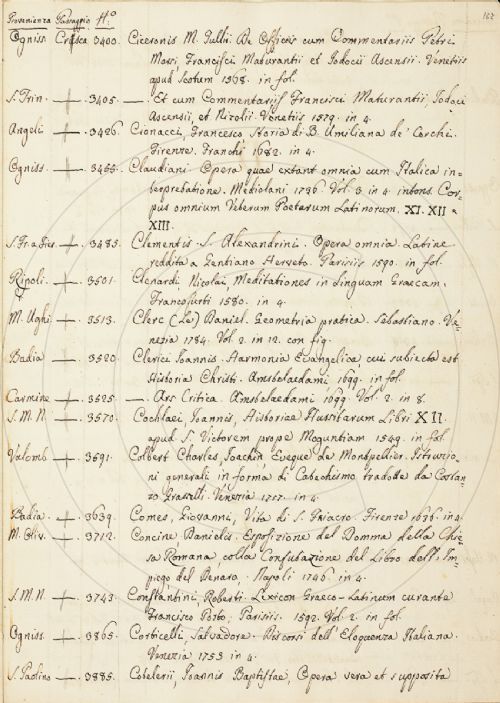 Provenienza Passaggio N.o
102
Ogniss. Crusca 3400. Ciceronis M. Tullii De Officiis cum Commentariis Petri
Marsi, Francisci Maturantii et Jodocii Ascensii. Venetiis
apud Scotum 1568. in fol.
S. Trin. 3405. —. Et cum Commentariis Francisci Maturantii, Jodoci
Ascensii, et Nizolii. Venetiis 1579. in 4.
Angeli 3426. Cionacci, Francesco Storia di B. Umiliana de' Cerchi.
Firenze. Franchi 1682. in 4.
Ogniss. 3455. Claudiani Opera quae extant omnia cum Italica in=
terpretatione. Mediolani 1736 Vol. 3 in 4. intons. Cor=
pus omnium Veterum Poetarum Latinorum. XI. XII e
XIII.
S. Fra Fies. 3485. Clementis S. Alexandrini. Opera omnia Latine
reddita a Gentiano Herveto. Parisiis 1590. in fol.
Ripoli. 3501. Clenardi, Nicolai, Meditationes in Linguam Graecam.
Francofurti 1580. in 4.
M. Ughi 3513. Clerc (Le) Daniel. Geometria pratica. Sebastiano. Ve=
nezia 1784. Vol. 2. in 12. con fig.
Badia 3520. Clerici Joannis. Harmonia Evangelica, cui subiecta est
Historia Christi. Amstelaedami 1699. in fol.
Carmine 3525. —. Ars Critica. Amstelaedami 1699. Vol. 2. in 8.
S. M. N. 3570. Cochlaei, Joannis, Historiae Hussitarum Libri XII.
apud S. Victorem prope Moguntiam 1549. in fol.
Valomb. 3591. Colbert Charles, Joachin, Eveque de Montpellier. Istruzio
ni generali in forma di Catechismo tradotte da Costan
zo Grasselli. Venezia 1717. in 4.
Badia. 3639. Comes, Giovanni, Vita di S. Friacro. Firenze 1636. in 4.
M. Oliv. 3712. Concine, Danielis. Esposizione del Domma della Chie
sa Romana, colla Confutazione del Libro dell' Im=
piego del Denaro. Napoli 1746. in 4.
S. M. N. 3743. Constantini, Roberti. Lexicon Graeco-Latinum curante
Francisco Porto. Parisiis. 1592. Vol. 2. in fol.
Ogniss. 3865. Corticelli, Salvadore. Discorsi dell' Eloquenza Italiana.
Venezia 1753 in 4.
S. Paolino 3885. Cotelerii, Joannis Baptistae, Opera vera et supposita